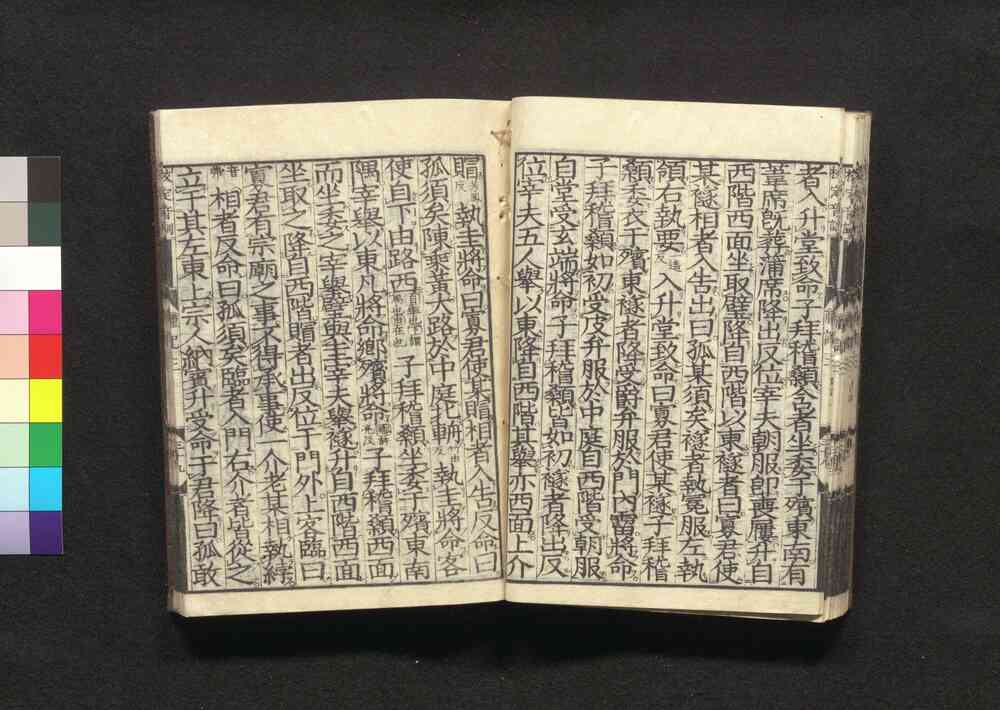 者入升堂致命子拜稽顙含者坐委于殯東南有
葦席旣葬蒲席降出反位宰夫朝服卽喪屨升自
西階西面坐取璧降自西階以東襚者曰寡君使
某襚相者入告出曰孤某須矣襚者執冕服左執
領右執要入升堂致命曰寡君使某襚子拜稽
顙委衣于殯東襚者降受爵弁服於門內霤將命
子拜稽顙如初受皮弁服於中庭自西階受朝服
自堂受玄端將命子拜稽顙皆如初襚者降出反
位宰夫五人舉以東降自西階其舉亦西面上介
賵芳鳳反執圭將命曰寡君使某賵相者入告反命曰
孤須矣陳乘黃大路於中庭北輈執圭將命客
使自下由路西子拜稽顙坐委于殯東南
隅宰舉以東凡將命鄉殯將命子拜稽顙西面
而坐委之宰舉璧與圭宰夫舉襚升自西階西面
坐取之降自西階賵者出反位于門外上客臨曰
寡君有宗廟之事不得承事使一介老某相執綍
相者反命曰孤須矣臨者入門右介者皆從之
立于其左東上宗人納賓升受命于君降曰孤敢